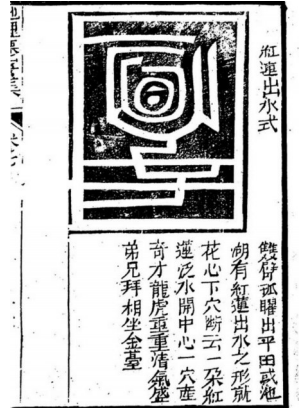 紅蓮出水式
雙辟孤曜出平田或池
湖有紅蓮出水之形就
花心下穴斷云一朶紅
蓮泛水開中心一穴産
奇才龍虎重重清氣盛
弟兄拜相坐金臺